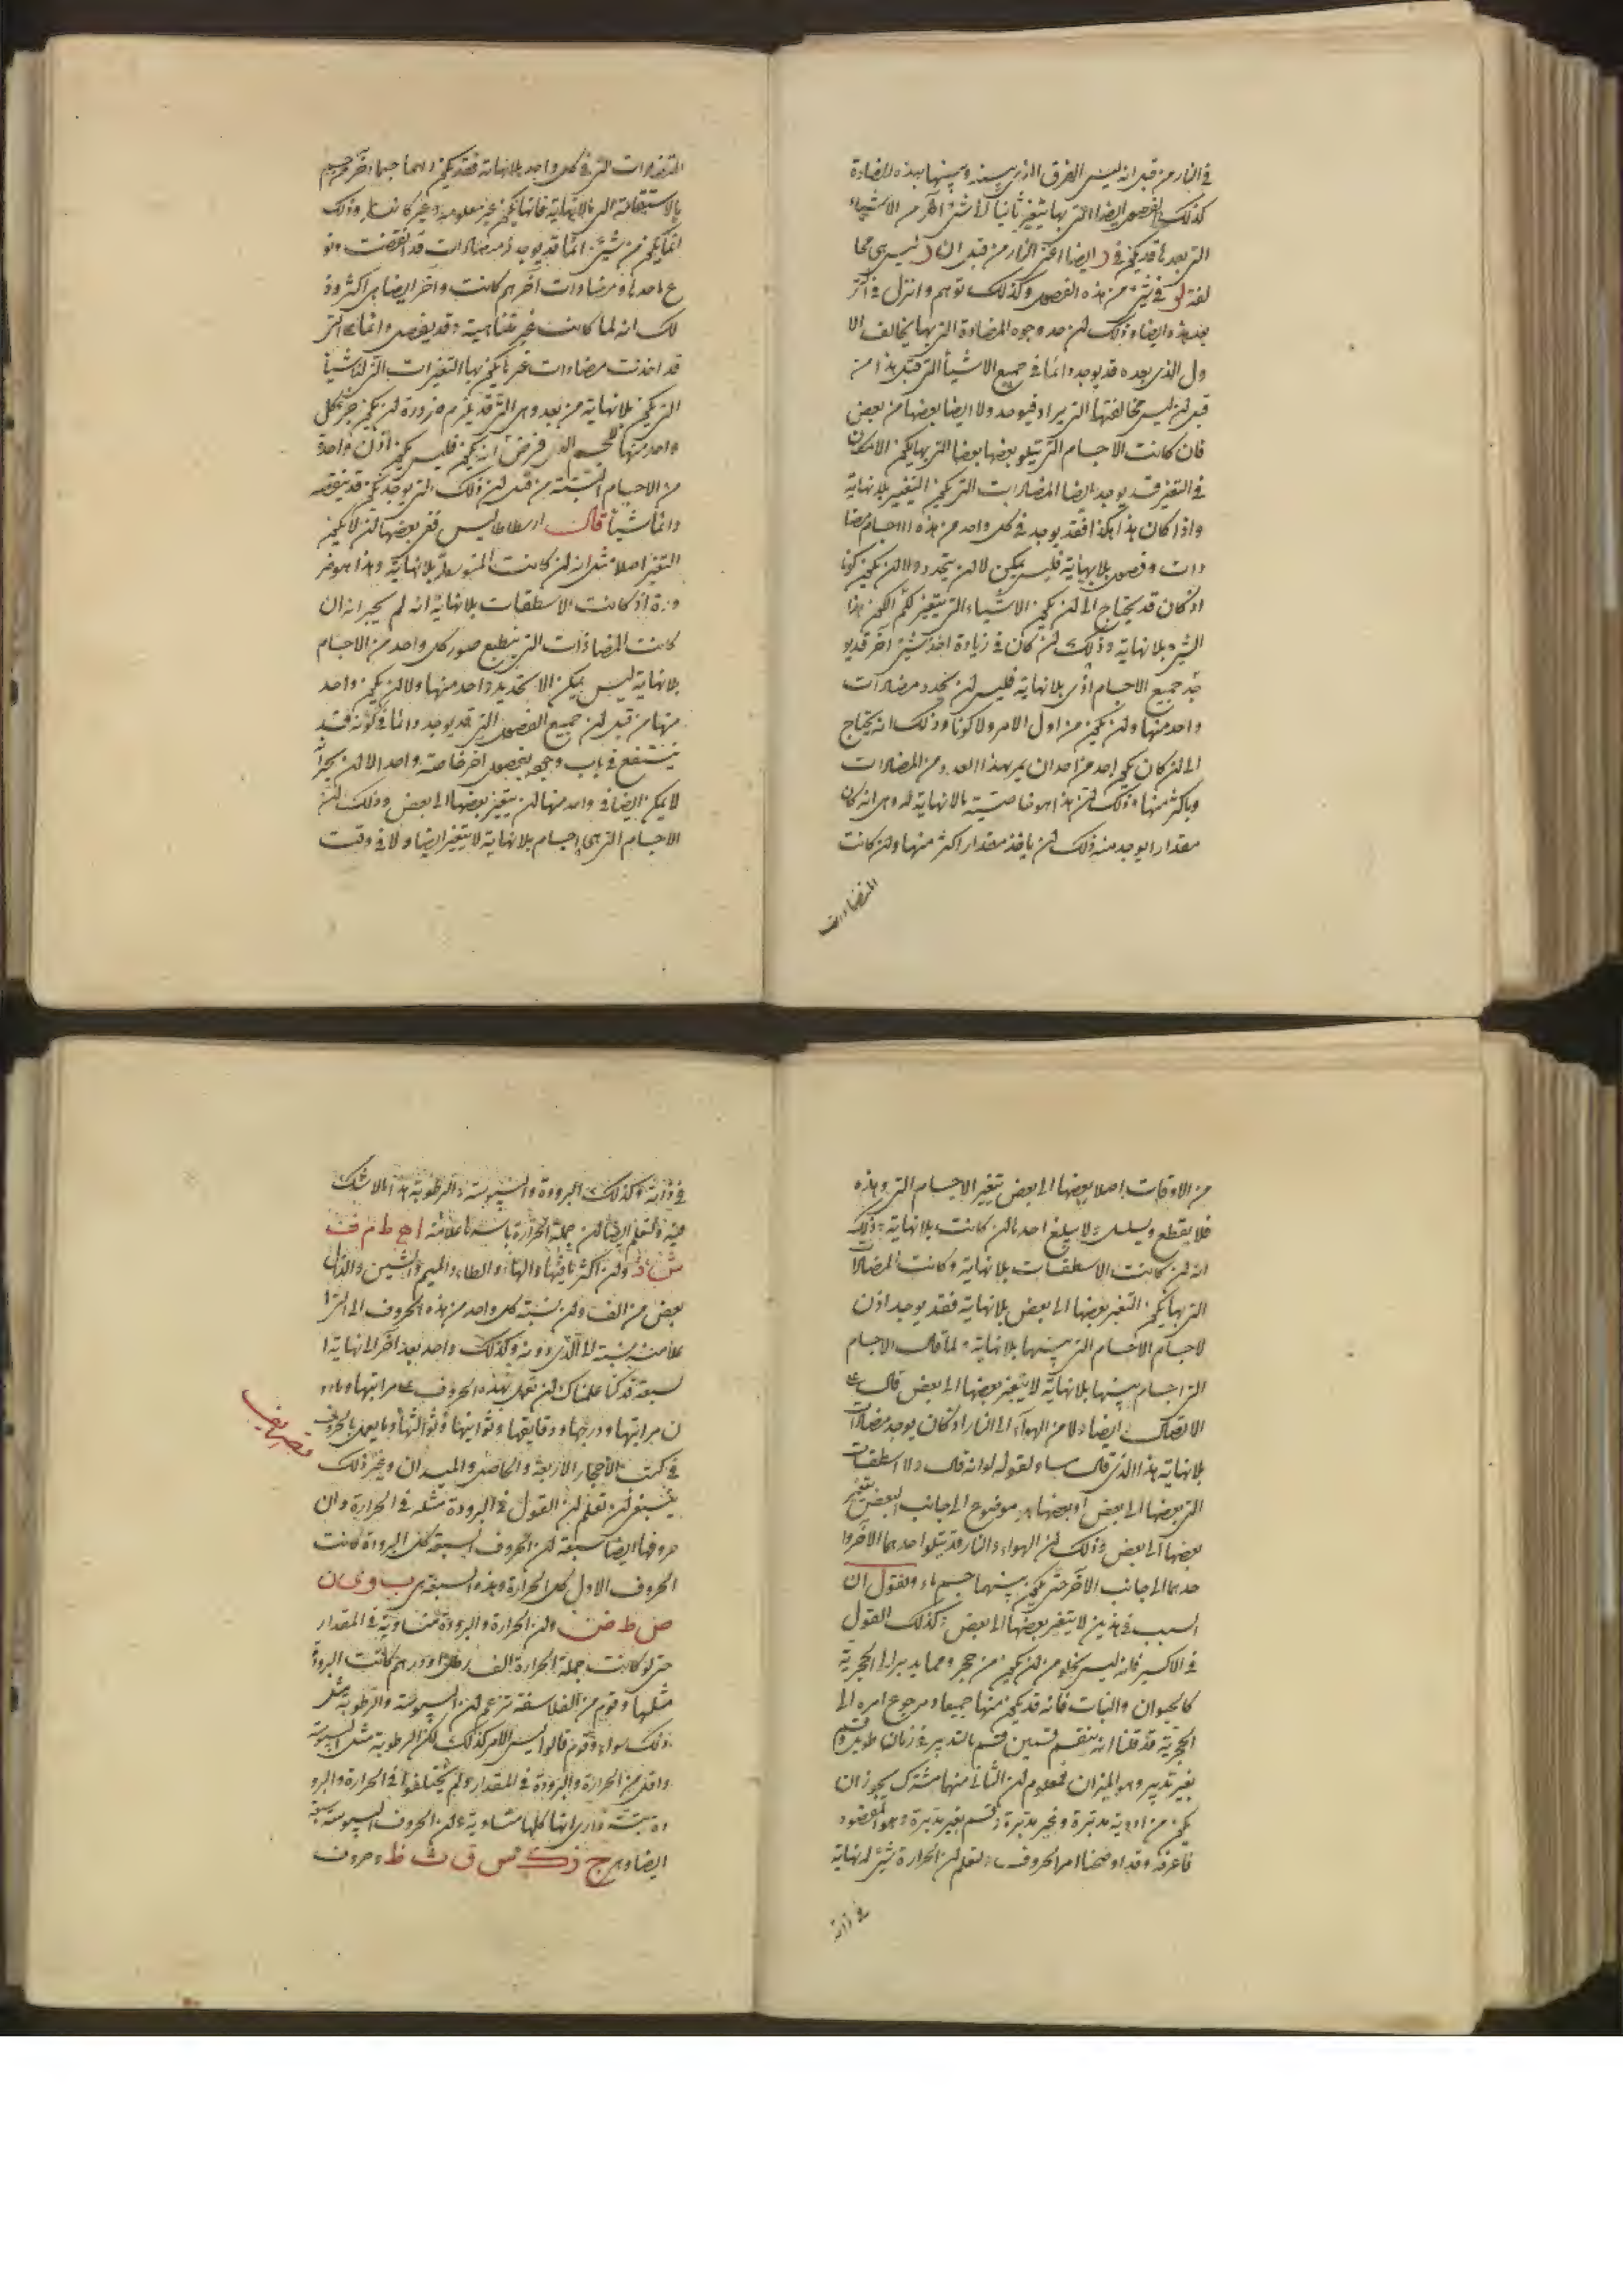 في النار من قبل انه ليس الفرق الذي بينه وبينها بهذه المضادة
كذلك الفصول ايضا التي بها يتغير ثانيا لا شئ آخر من الاشياء
التي بعدها قد يكون في ايضا اخرى النار من قبل ان ليس هي مخا
لفة لو في شئ من هذه الفصول وكذلك توهم وانزل في اكثر
بعد هذه ايضا وذلك لن حد وجوه المضادة التي بها يخالف الا
ول الذي بعده قد يوجد دائما في جميع الاشياء التي قبل هذا من
قبل لن ليس مخالفتها التي يراد فيوجد ولا ايضا بعضها من بعض
فان كانت الاجسام التي يتلو بعضها بعضا التي بها يكون الامكان
في التغير فقد يوجد ايضا المضادات التي يكون التغيير بلا نهاية
واذا كان هذا هكذا فقد يوجد في كل واحد من هذه الاجسام مضا
دات وفصول بلا نهاية فليس يمكن لا لن يتحدد ولا لن يكون كونا
اذ كان قد يحتاج الى لن يكون الاشياء التي يتغير لكم الكون هذا
الشئ بلا نهاية وذلك لن كان في زيادة اخذ شئ آخر قد يو
جد جميع الاجسام اذن بلا نهاية فليس لن يحدد مضادات
واحد منها ولن يكون من اول الامر ولا كونا وذلك انه يحتاج
الى لن كان يكون احد من احد ان يمر بهذا العدد من المضادات
وباكثر منها وذلك لن هذا هو خاصية بلا نهاية له وهي انه كان
مقدارا يوجد منه ذلك لن ياخذ مقدار اكثر منها ولن كانت
المتضادات
المتضادات التي في كل واحد بلا نهاية فقد يكون دائما جسما آخر من جسم
بالاستقامة الى ما لا نهاية فانها يكون غير معلومة وغير كائنة وذلك
انما يكون من شئ انما قد يوجد له مضادات قد انقضت ونو
ع احدها ومضادات آخر هم كانت وآخر ايضا هي اكثر وذ
لك انه لما كانت غير متناهية وقد يفصل دائما التي
قد اخذت مضادات غير ما يكون بها التغيرات التي لشيا
التي يكون بلا نهاية من بعد وهي التي قد يلزم ضرورة لن يكون جزء كل
واحد منها للجسم الذي فرض انه يكون فليس يكون اذن واحدة
من الاجسام البتة من قبل لن ذلك التي يوجد يكون قد ينقصه
دائما شيأ قال ارسطاطاليس ففي بعضها لن لا يكون
التغير اصلا مثل انه لن كانت المتوسطة بلا نهاية وهذا هو ضر
ورة اذ كانت الاسطقسات بلا نهاية انه لم يخبر انه ان
كانت المضادات التي ينطبع صور كل واحد من الاجسام
بلا نهاية ليس يمكن الا تحديد واحد منها ولا لن يكون واحد
منها من قبل لن جميع الفصول التي قد يوجد دائما في كونه فقد
ينتفع في باب وجود بفصول آخر خاصة واحد الا لن يجزأ
لا يمكن ايضا في واحد منها لن يتغير بعضها الى بعض وذلك لن
الاجسام التي هي اجسام بلا نهاية لا يتغير ايضا ولا في وقت
من الاوقات اصلا بعضها الى بعض يتغير الاجسام التي وهذه
فلا يقطع ويسلك ولا يبلغ احدها لن كانت بلا نهاية وذلك
انه لن كانت الاسطقسات بلا نهاية وكانت المضادات
التي بها يكون التغير بعضها الى بعض بلا نهاية فقد يوجد اذن
لاجسام الاجسام التي بينها بلا نهاية ولما قال الاجسام
التي اجسام بينها بلا نهاية لا يتغير بعضها الى بعض قال على
الاتصال ايضا ولا من الهواء الى النار اذ كان يوجد مضادات
بلا نهاية هذا الذي قال مساو لقوله لو انه قال ولا اسطقسات
التي بعضها الى بعض او بعضها موضوع الى جانب البعض يتغير
بعضها الى بعض وذلك لن الهواء والنار قد يتلو احدهما الآخر وا
حدهما الى جانب الآخر حتى يكون بينهما جسم ما ونقول ان
السبب في هذين لا يتغير بعضها الى بعض وكذلك القول
في الاكسير فانه ليس يخلو من لن يكون من حجر ومما يدبر الى الحجرية
كالحيوان والنبات فانه قد يكون منها جميعا ومرجوع امره الى
الحجرية قد قلنا انه ينقسم قسمين قسم بالتدبير في زمان طويل وقسم
بغير تدبير وهو الميزان فمعلوم لن الثاني منهما مشترك يجوز ان
يكون من ادوية مدبرة وغير مدبرة وقسم بغير مدبرة وهو المقصود
فاعرفه وقد اوضحنا امر الحروف ولتعلم لن الحرارة شئ له نهاية
في ذاته
في ذاته وكذلك البرودة واليبوسة والرطوبة هذا ما لا شك
فيه ولتعلم ايضا لن جملة الحرارة باسرها علامته ا ه ط م ف
ش ذ ولن اكثرها فيها والهاء والطاء والميم والشين والذال
بعض من الف ولن نسبة كل واحد من هذه الحروف الى التي
علامته نسبة الى الذي دونه وكذلك واحد بعد آخر الى نهاية ا
لسبعة قد كنا علمناك لن تعمل بهذه الحروف على مراتبها وماد
ن مراتبها ودرجها ودقايقها وثوانيها وثوالثها وما يعمل بالحروف
تصاريف
في كتب الاحجار الاربعة والحاصل والميدان وغير ذلك
ينبغي لن تعلم لن القول في البرودة مثله في الحرارة وان
حروفها ايضا سبعة لن الحروف السبعة كل البرودة كانت
الحروف الاول كل الحرارة وهذه السبعة هي ب و ي ن
ص ط ض ولن الحرارة والبرودة متساوية في المقدار
حتى لو كانت جملة الحرارة الف رطل ودرهم كانت البرودة
مثلها وقوم من الفلاسفة تزعم لن اليبوسة والرطوبة مثل
ذلك سواء وقوم قالوا ليس الامر كذلك لكن الرطوبة مثل اليبوسة
واقل من الحرارة والبرودة في المقدار ولم يختلفوا في الحرارة والبرو
دة بتة وارى انها كلها متساوية ولن الحروف اليبوسة سبعة
ايضا وهي ج ز ك س ق ث ظ وحروف